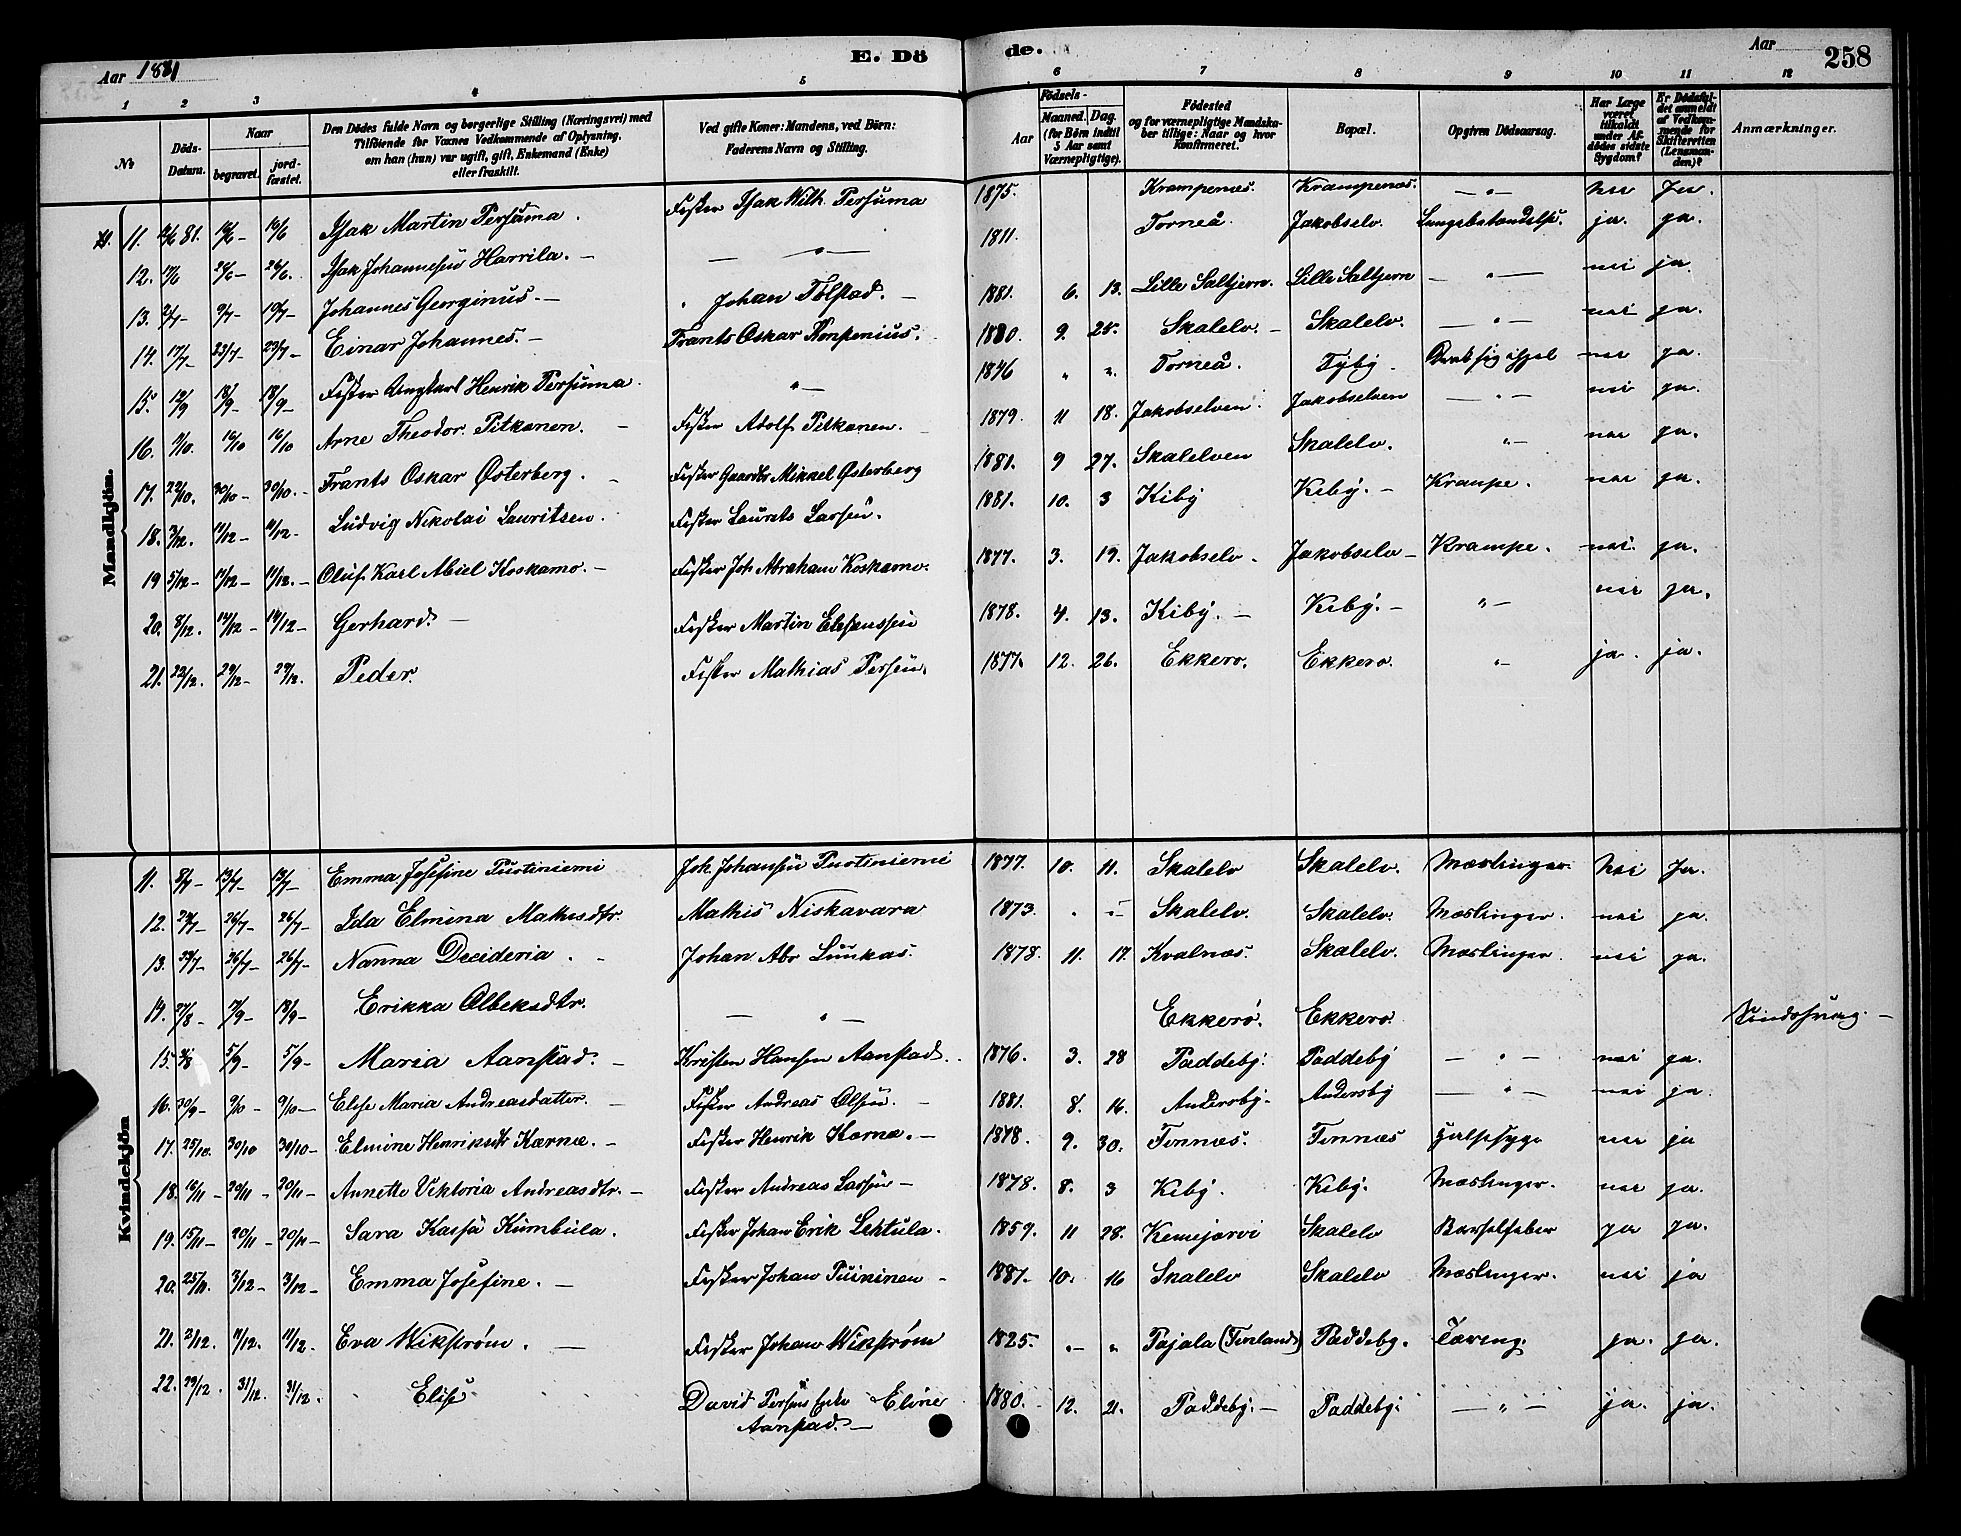 Aar 1881 E. Dö de. Aar 258
1 2 3 4 5 6 7 8 9 10 11 12
No
Döds-Datum.
Naar begravet. jordfæstet.
Den Dödes fulde Navn og borgerlige Stilling (Næringsvei) med Tilföiende for Voxnes Vedkommende af Oplysning, om han (hun) var ugift, gift, Enkemand (Enke) eller fraskilt.
Ved gifte Koner: Mandens, ved Börn: Faderens Navn og Stilling.
Födsels- Aar Maaned. Dag. (for Börn indtil 5 Aar samt Værnepligtige).
Födested og for værnepligtige Mandskaber tillige: Naar og hvor Konfirmeret.
Bopæl.
Opgiven Dödsaarsag.
Har Læge været tilkaldt under Afdødes sidste Sygdom?
Er Dödsfaldet anmeldt af Vedkommende for Skifteretten (Lensmanden)?
Anmærkninger.
Mandkjön.
11. 81. 16/6 Isak Martin Persuma. Fisker Isak Wilh. Persuma 1875. Krampenæs. Krampenæs. — " — nei Ja.
12. 17/6 26/6 — 26/6. Isak Johannesen Harrila. — — " — 1811. Torneå. Jakobselv. Lungebetændelse. ja. ja.
13. 2/7 — 9/7 — 19/7 — Johannes Georginus. — " Johan Tolstad. — 1881. 6. 13. Lille Saltjern. Lille Saltjern — " — nei ja.
14. 17/7 — 23/7 — 23/7 — Einar Johannes. — Frants Oskar Kempenius. 1880. 9. 25. Skalelv. — Skalelv. — " — nei ja.
15. 12/9 18/9 — 18/9 — Fisker Ungkarl Henrik Persuma. " — 1846 " " Torneå. Tyby. nei ja.
16. 9/10. 16/10 16/10 Arne Theodor Pitkanen. — Fisker Adolf Pitkanen. — 1879. 11 18. Jakobselven. Jakobselven — " — nei ja.
17. 22/10. 30/10 — 30/10. — Frants Oskar Østerberg. — Fisker Gaardbr. Mikkel Østerberg 1881. 9 27. Skalelven Skalelv. " — nei ja.
18. 3/12. 11/12 — 11/12 — Ludvig Nikolai Lauritsen. Fisker Laurits Larsen. 1881. 10. 3 Kiby Kiby. — Krampe. nei ja.
19 5/12 — 11/12 — 11/12. — Oluf Karl Abiel Koskamo. — Fisker Joh. Abraham Koskamo. 1877. 3. 19. Jakobselv. Jakobselv — Krampe. nei. ja.
20. 8/12. 14/12 — 14/12 — Gerhard. — Fisker Martin 1878. 4. 13. Kiby. — Kiby. — " — nei ja.
21. 22/12. 29/12 — 29/12. Peder. Fisker Mathias Persen. 1877. 12. 26. Ekkerø. Ekkerø. " ja. ja.
Kvindekjön
11. 8/7 — 13/7 — 13/7 — Emma Josefine Puotiniemi Joh. Johansen Puotiniemi 1877. 10. 11. Skalelv Skalelv. Mæslinger. Nei Ja.
12. 26/7 — 26/7 — Ida Elmina Mathisdtr. Mathis Niskavara 1873. " Skalelv. Skalelv. Mæslinger. nei ja.
13. 26/7 — 26/7 — Nanna Decideria. — Johan Abr. Luukas. 1878. 11. 17. Kvalnæs. Skalelv. Mæslinger. nei ja.
14. 27/8 — 7/9 — 18/9 — Erikka Olbeksdtr. — " — Ekkerø. Ekkerø.
15. 5/9 — 5/9 — Maria Aanstad. — Kristen Hansen Aanstad. 1876. 3. 28 Paddeby. Paddeby — " — nei ja.
16. 30/9 — 9/10 — 9/10 — Elise Maria Andreasdatter. — Fisker Andreas Olsen. — 1881. 8. 16. Andersby. Andersby — " — nei ja
17. 25/10. 30/10 30/10 — Elmine Henriksdtr Kærnæ. — Fisker Henrik Kærnæ. — 1878. 9. 30. Finnæs. Finnæs Halssyge nei ja
18. 16/11 — 20/11 — 20/11 — Annette Viktoria Andreasdtr. — Fisker Andreas Larsen — 1878. 8. 3 Kiby. Kiby. Mæslinger. nei ja.
19. 15/11 — 20/11 — 20/11 — Sara Kaisa Kumbula. Fisker Johan Erik Lehtula. 1859. 11 28. Kemijarvi Skalelv Barselfeber ja ja.
20. 25/11. 3/12 — 3/12 — Emma Josefine. — Fisker Johan Puikinen — 1881. 10. 16 Skalelv Skalelv Mæslinger. nei ja
21. 2/12. 11/12. 11/12. Eva Wikstrøm. — Fisker Johan Wikstrøm 1825. " — " Pajala (Finland) Paddeby. Tæring. ja. ja.
22. 29/12. 31/12. 31/12. Elise David Persen Eline 1880. 12. 21. Paddeby. — Paddeby. — " — ja. ja.
Aanstad. —